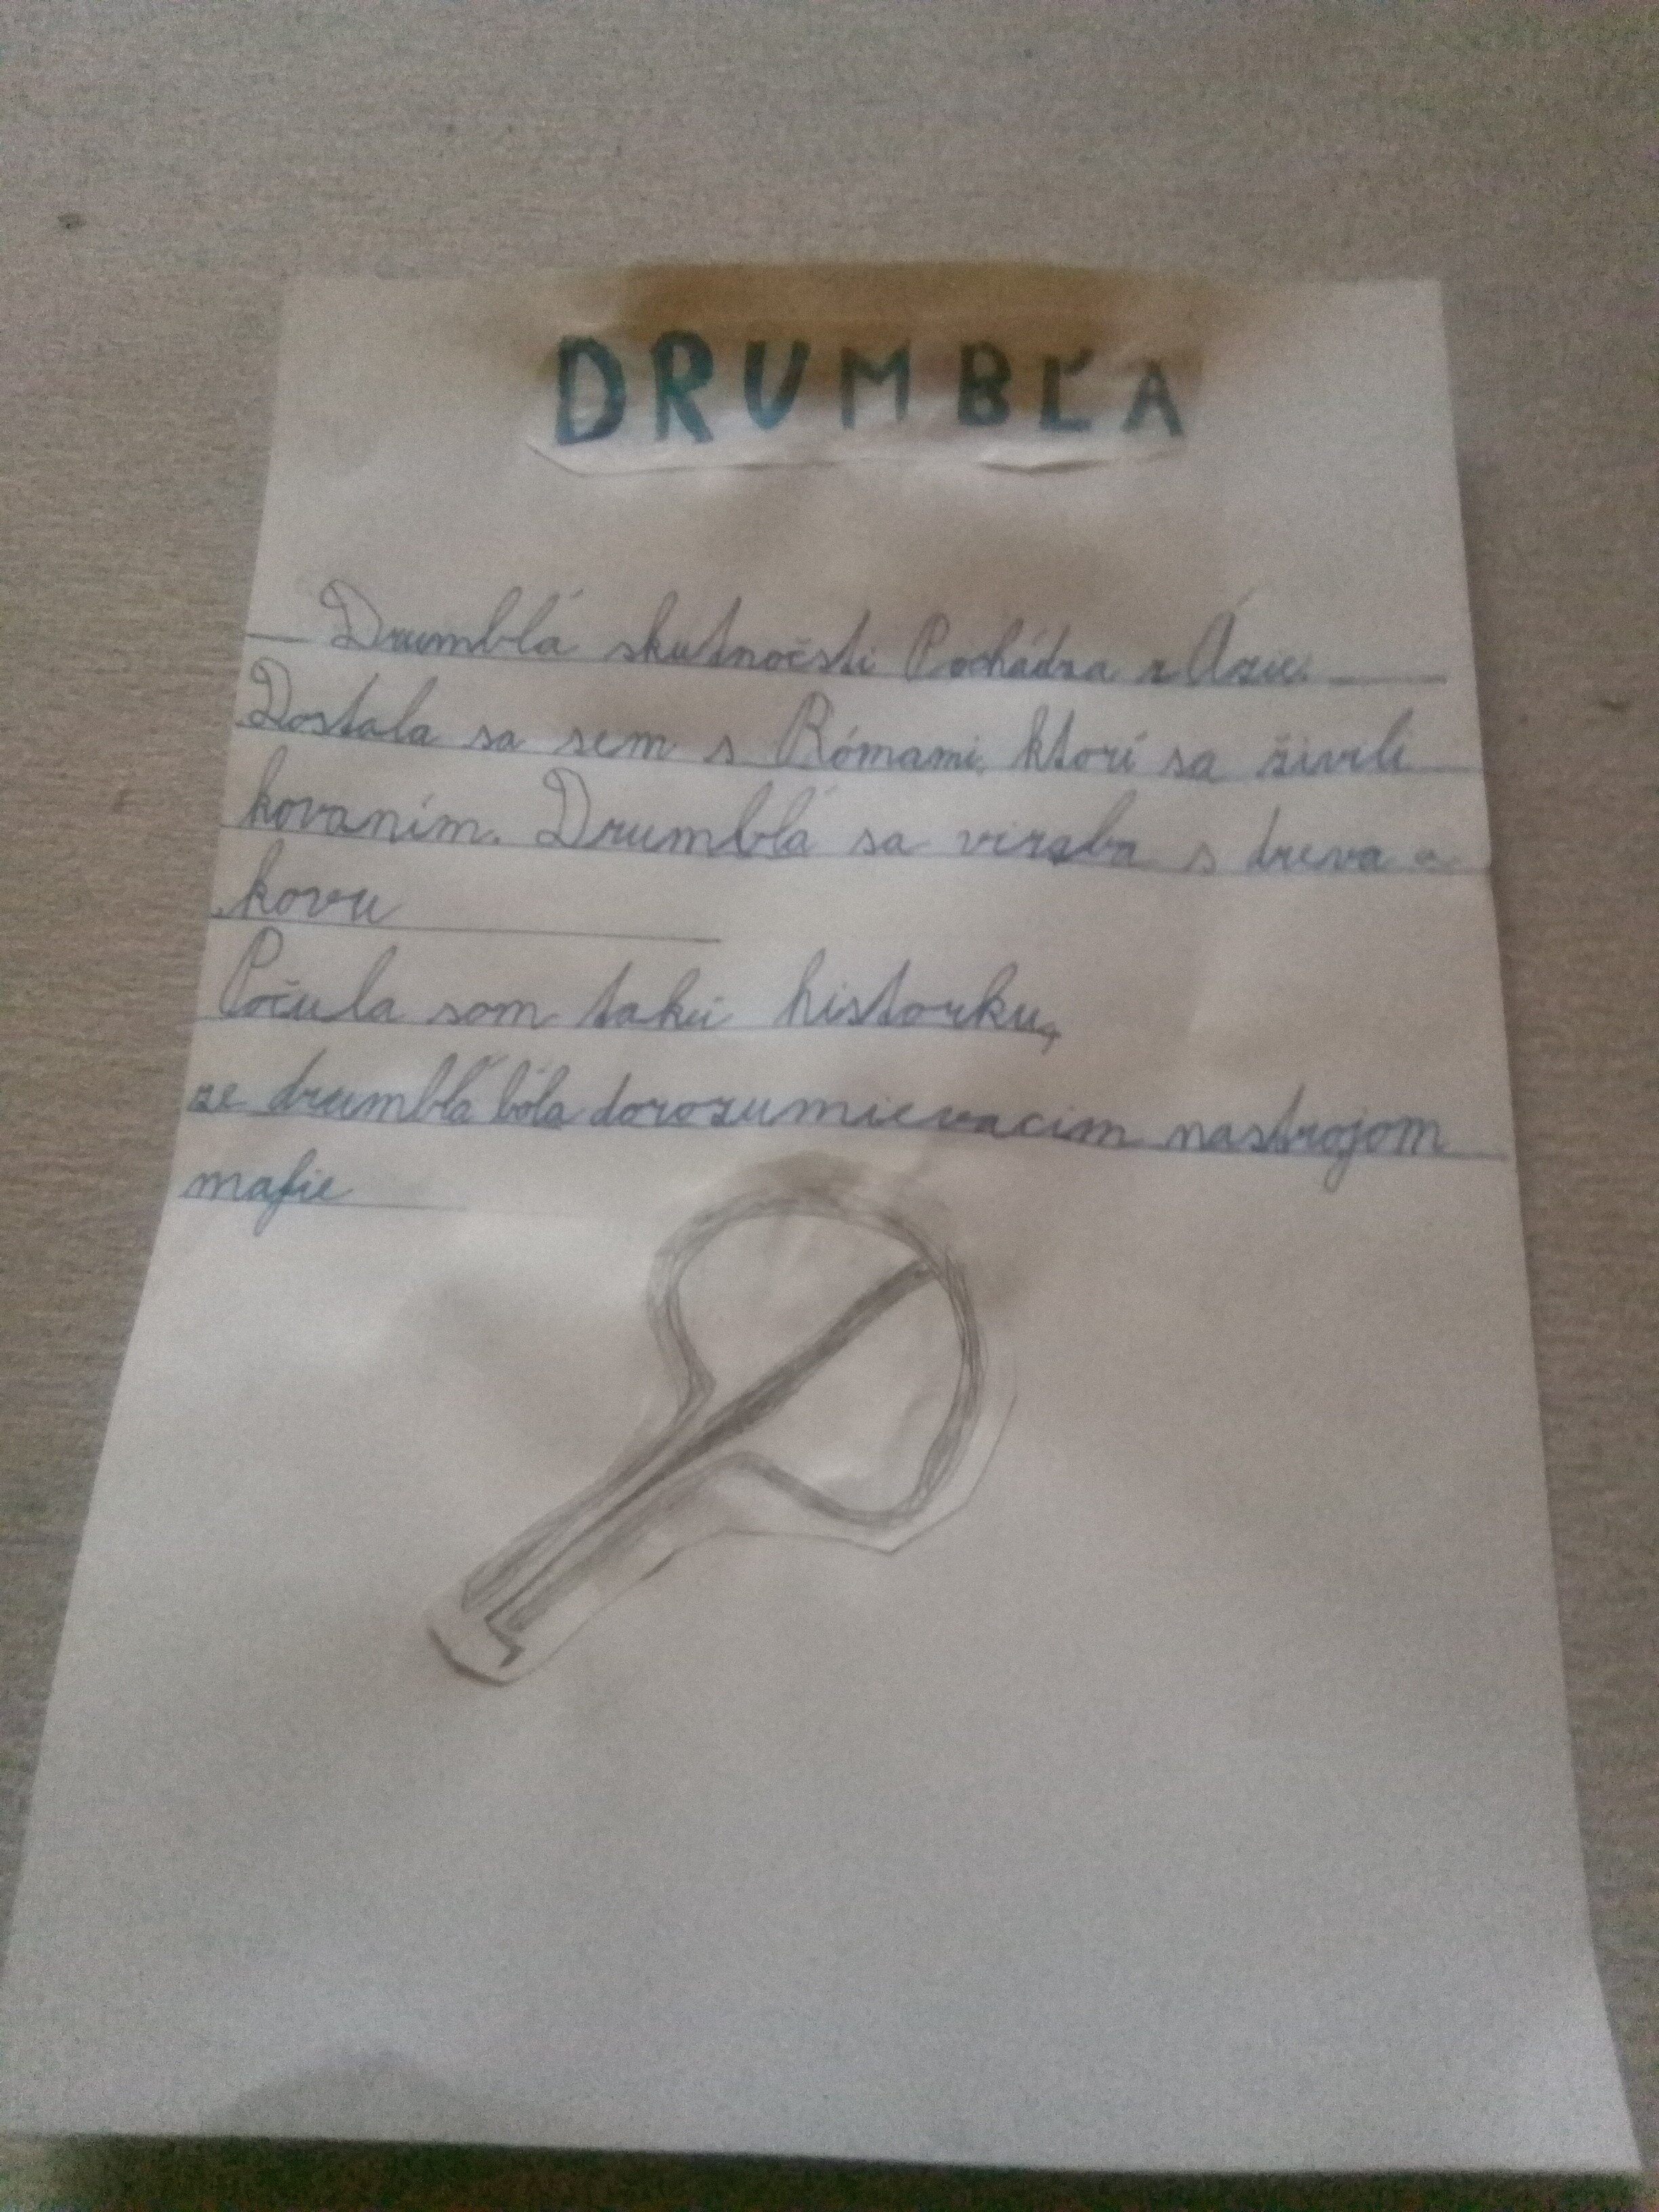 DRUMBĽA
Drumblá skutnočsti Pochádza z Ázie.
Dostala sa sem s Rómami, ktorí sa živili
kovaním. Drumblá sa viraba s dreva a
kovu
Počula som takú historku,
ze drumblá bola dorozumievacim nastrojom
mafie